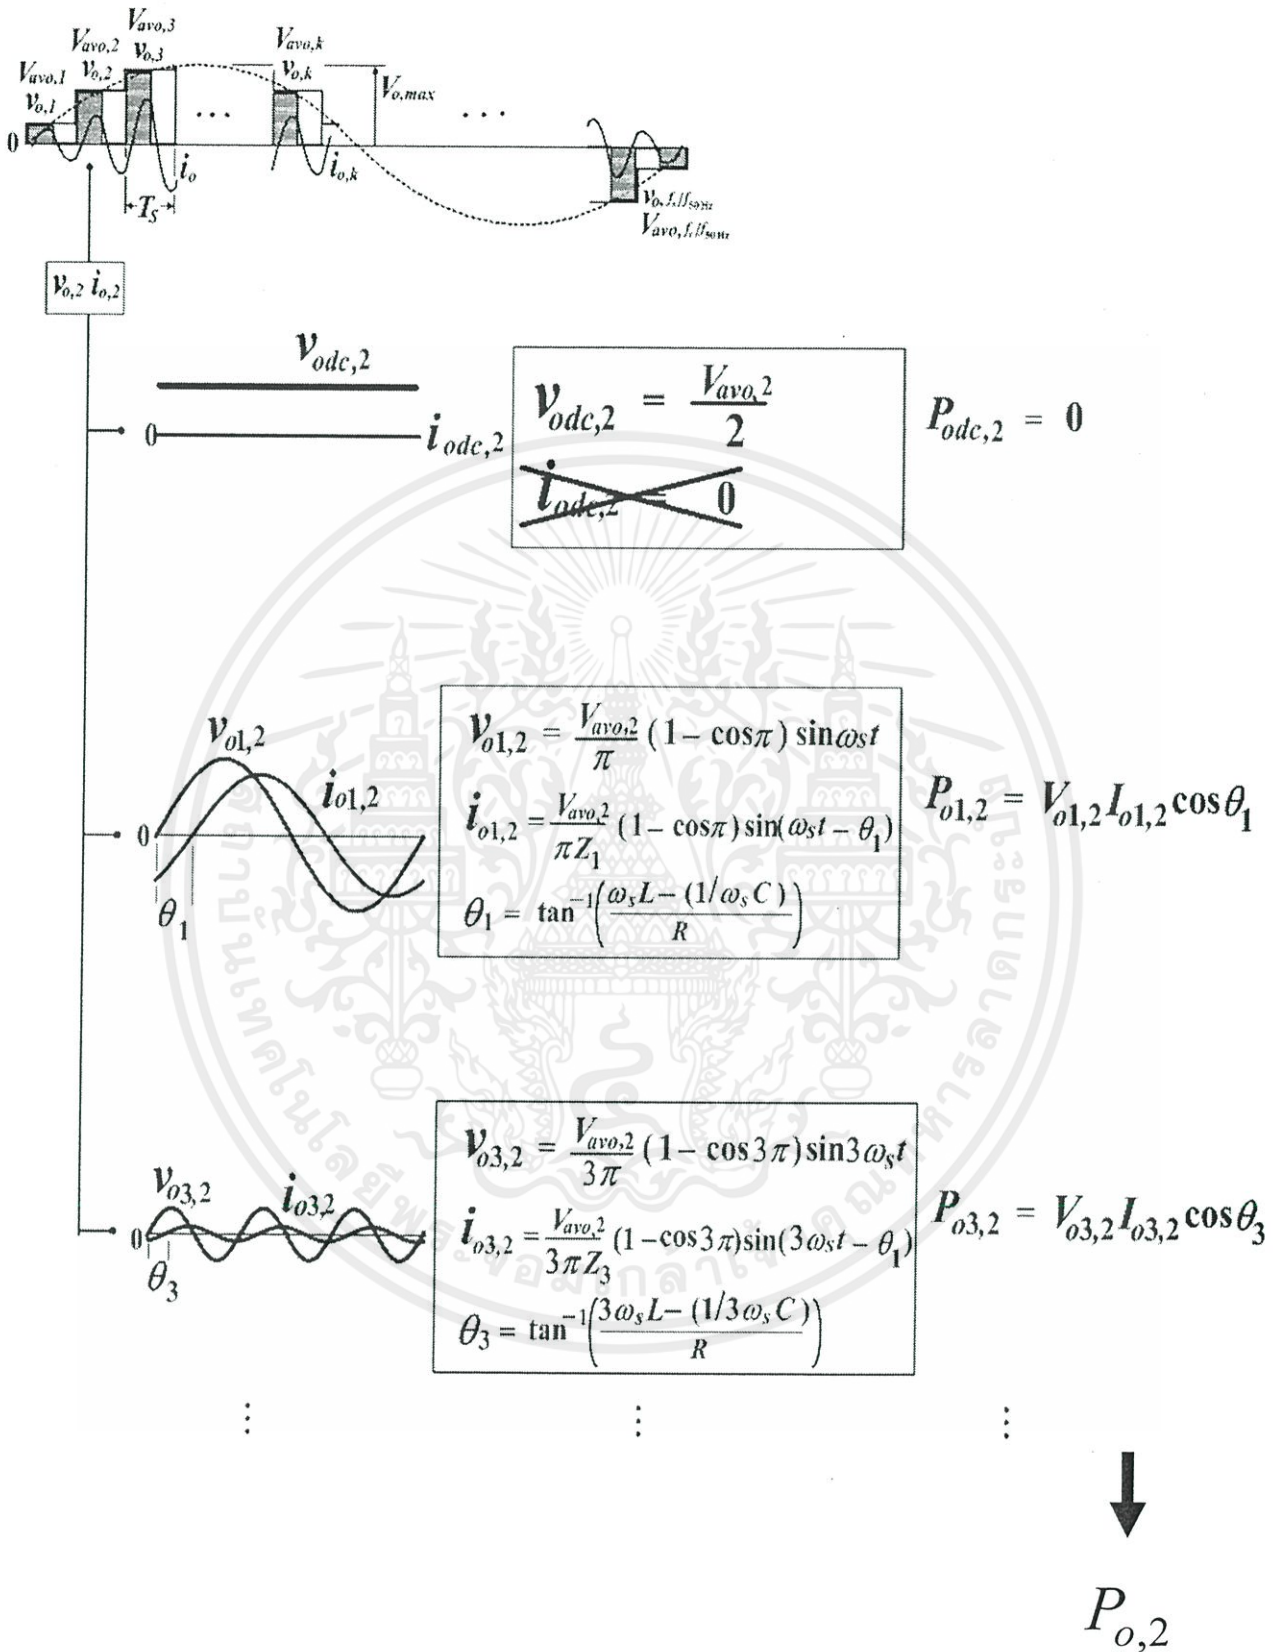 V_{avo,3}
V_{avo,2} v_{o,3} V_{avo,k}
V_{avo,1} v_{o,2} v_{o,k}
v_{o,1} V_{o,max}
0 ... ...
i_o i_{o,k}
T_S
v_{o,f_s/f_{50Hz}}
V_{avo,f_s/f_{50Hz}}
v_{o,2} i_{o,2}
v_{odc,2}
0 i_{odc,2}
v_{odc,2} = \frac{V_{avo,2}}{2}
i_{odc,2} = 0
P_{odc,2} = 0
v_{o1,2}
i_{o1,2}
0
θ_1
v_{o1,2} = \frac{V_{avo,2}}{π} (1 - cosπ) sinω_S t
i_{o1,2} = \frac{V_{avo,2}}{πZ_1} (1 - cosπ) sin(ω_S t - θ_1)
θ_1 = tan^{-1}(\frac{ω_s L - (1/ω_s C)}{R})
P_{o1,2} = V_{o1,2} I_{o1,2} cosθ_1
v_{o3,2} i_{o3,2}
0
θ_3
v_{o3,2} = \frac{V_{avo,2}}{3π} (1 - cos3π) sin3ω_s t
i_{o3,2} = \frac{V_{avo,2}}{3πZ_3} (1 - cos3π) sin(3ω_s t - θ_1)
θ_3 = tan^{-1}(\frac{3ω_s L - (1/3ω_s C)}{R})
P_{o3,2} = V_{o3,2} I_{o3,2} cosθ_3
⋮ ⋮ ⋮
P_{o,2}
สถาบันเทคโนโลยีพระจอมเกล้าเจ้าคุณทหารลาดกระบัง